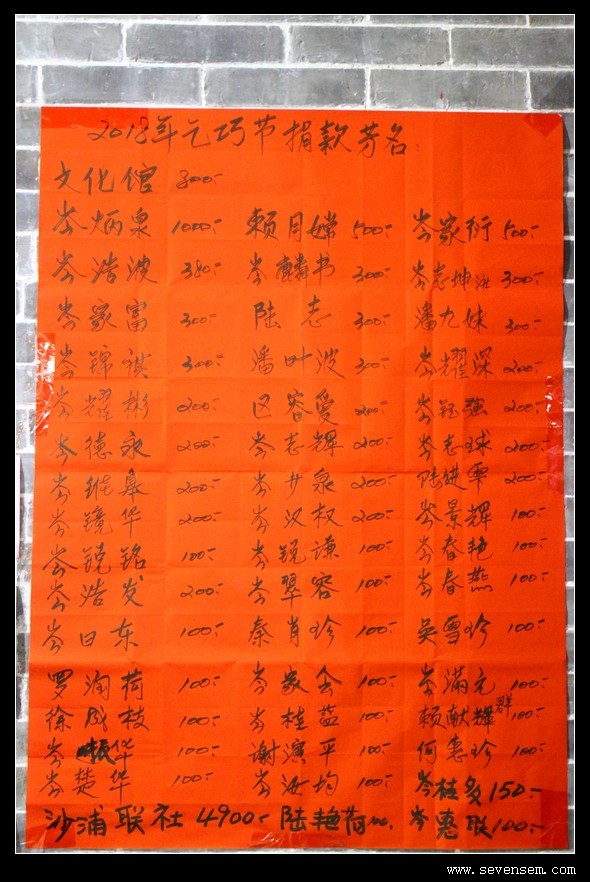 2018年乞巧节捐款芳名：
文化馆 800.-
岑炳泉 1000.- 赖月嫦 500.- 岑家衍 500.-
岑浩波 380.- 岑麟书 300.- 岑志坤 300.-
岑家富 300.- 陆志 300.- 潘九妹 300.-
岑锦祺 300.- 潘叶波 300.- 岑耀深 200.-
岑耀彬 200.- 区容爱 200.- 岑钰强 200.-
岑德永 200.- 岑志辉 200.- 岑志球 200.-
岑维皋 200.- 岑少泉 200.- 陆进雫 200.-
岑镜华 200.- 岑汉权 200.- 岑景辉 100.-
岑锐铭 100.- 岑锐谦 100.- 岑春艳 100.-
岑浩发 200.- 岑翠容 100.- 岑春燕 100.-
岑日东 100.- 秦肖珍 100.- 吴雪珍 100.-
罗润荷 100.- 岑家会 100.- 岑满元 100.-
徐成枝 100.- 岑桂蓝 100.- 赖献辉群 100.-
岑华 100.- 谢演平 100.- 何惠珍 100.-
岑楚华 100.- 岑汝均 100.- 岑桂多 150.-
沙浦联社 4900.- 陆艳荷 100. 岑惠联 100.-
www.sevensem.com